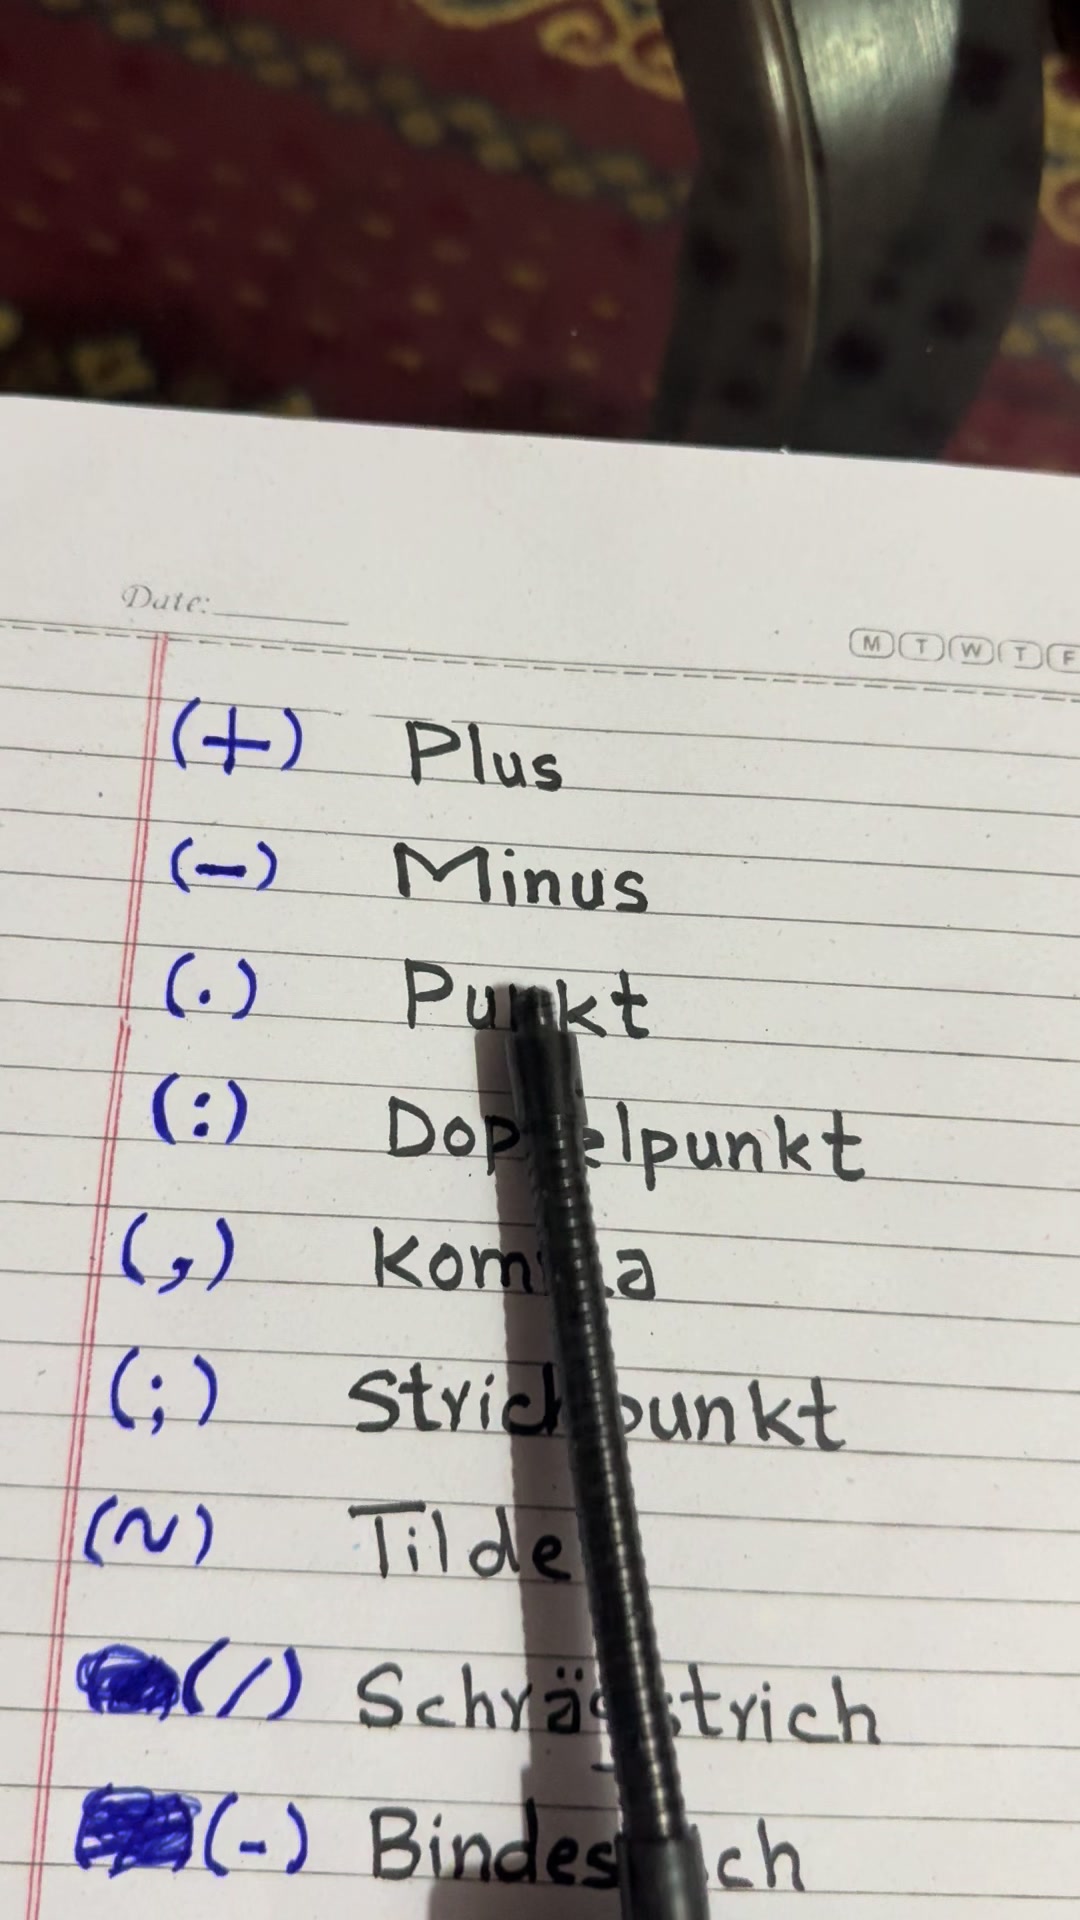 Date:
M T W T F
(+) Plus
(-) Minus
(.) Punkt
(:) Doppelpunkt
(,) Komma
(;) Strichpunkt
(~) Tilde
(/) Schrägstrich
(-) Bindestrich